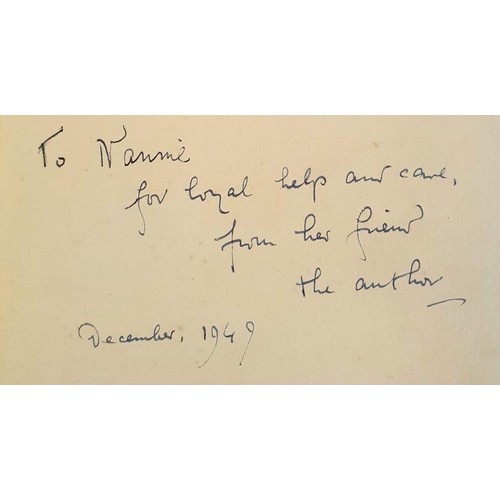 To Nannie
for loyal help and care,
from her friend
the author
December, 1949